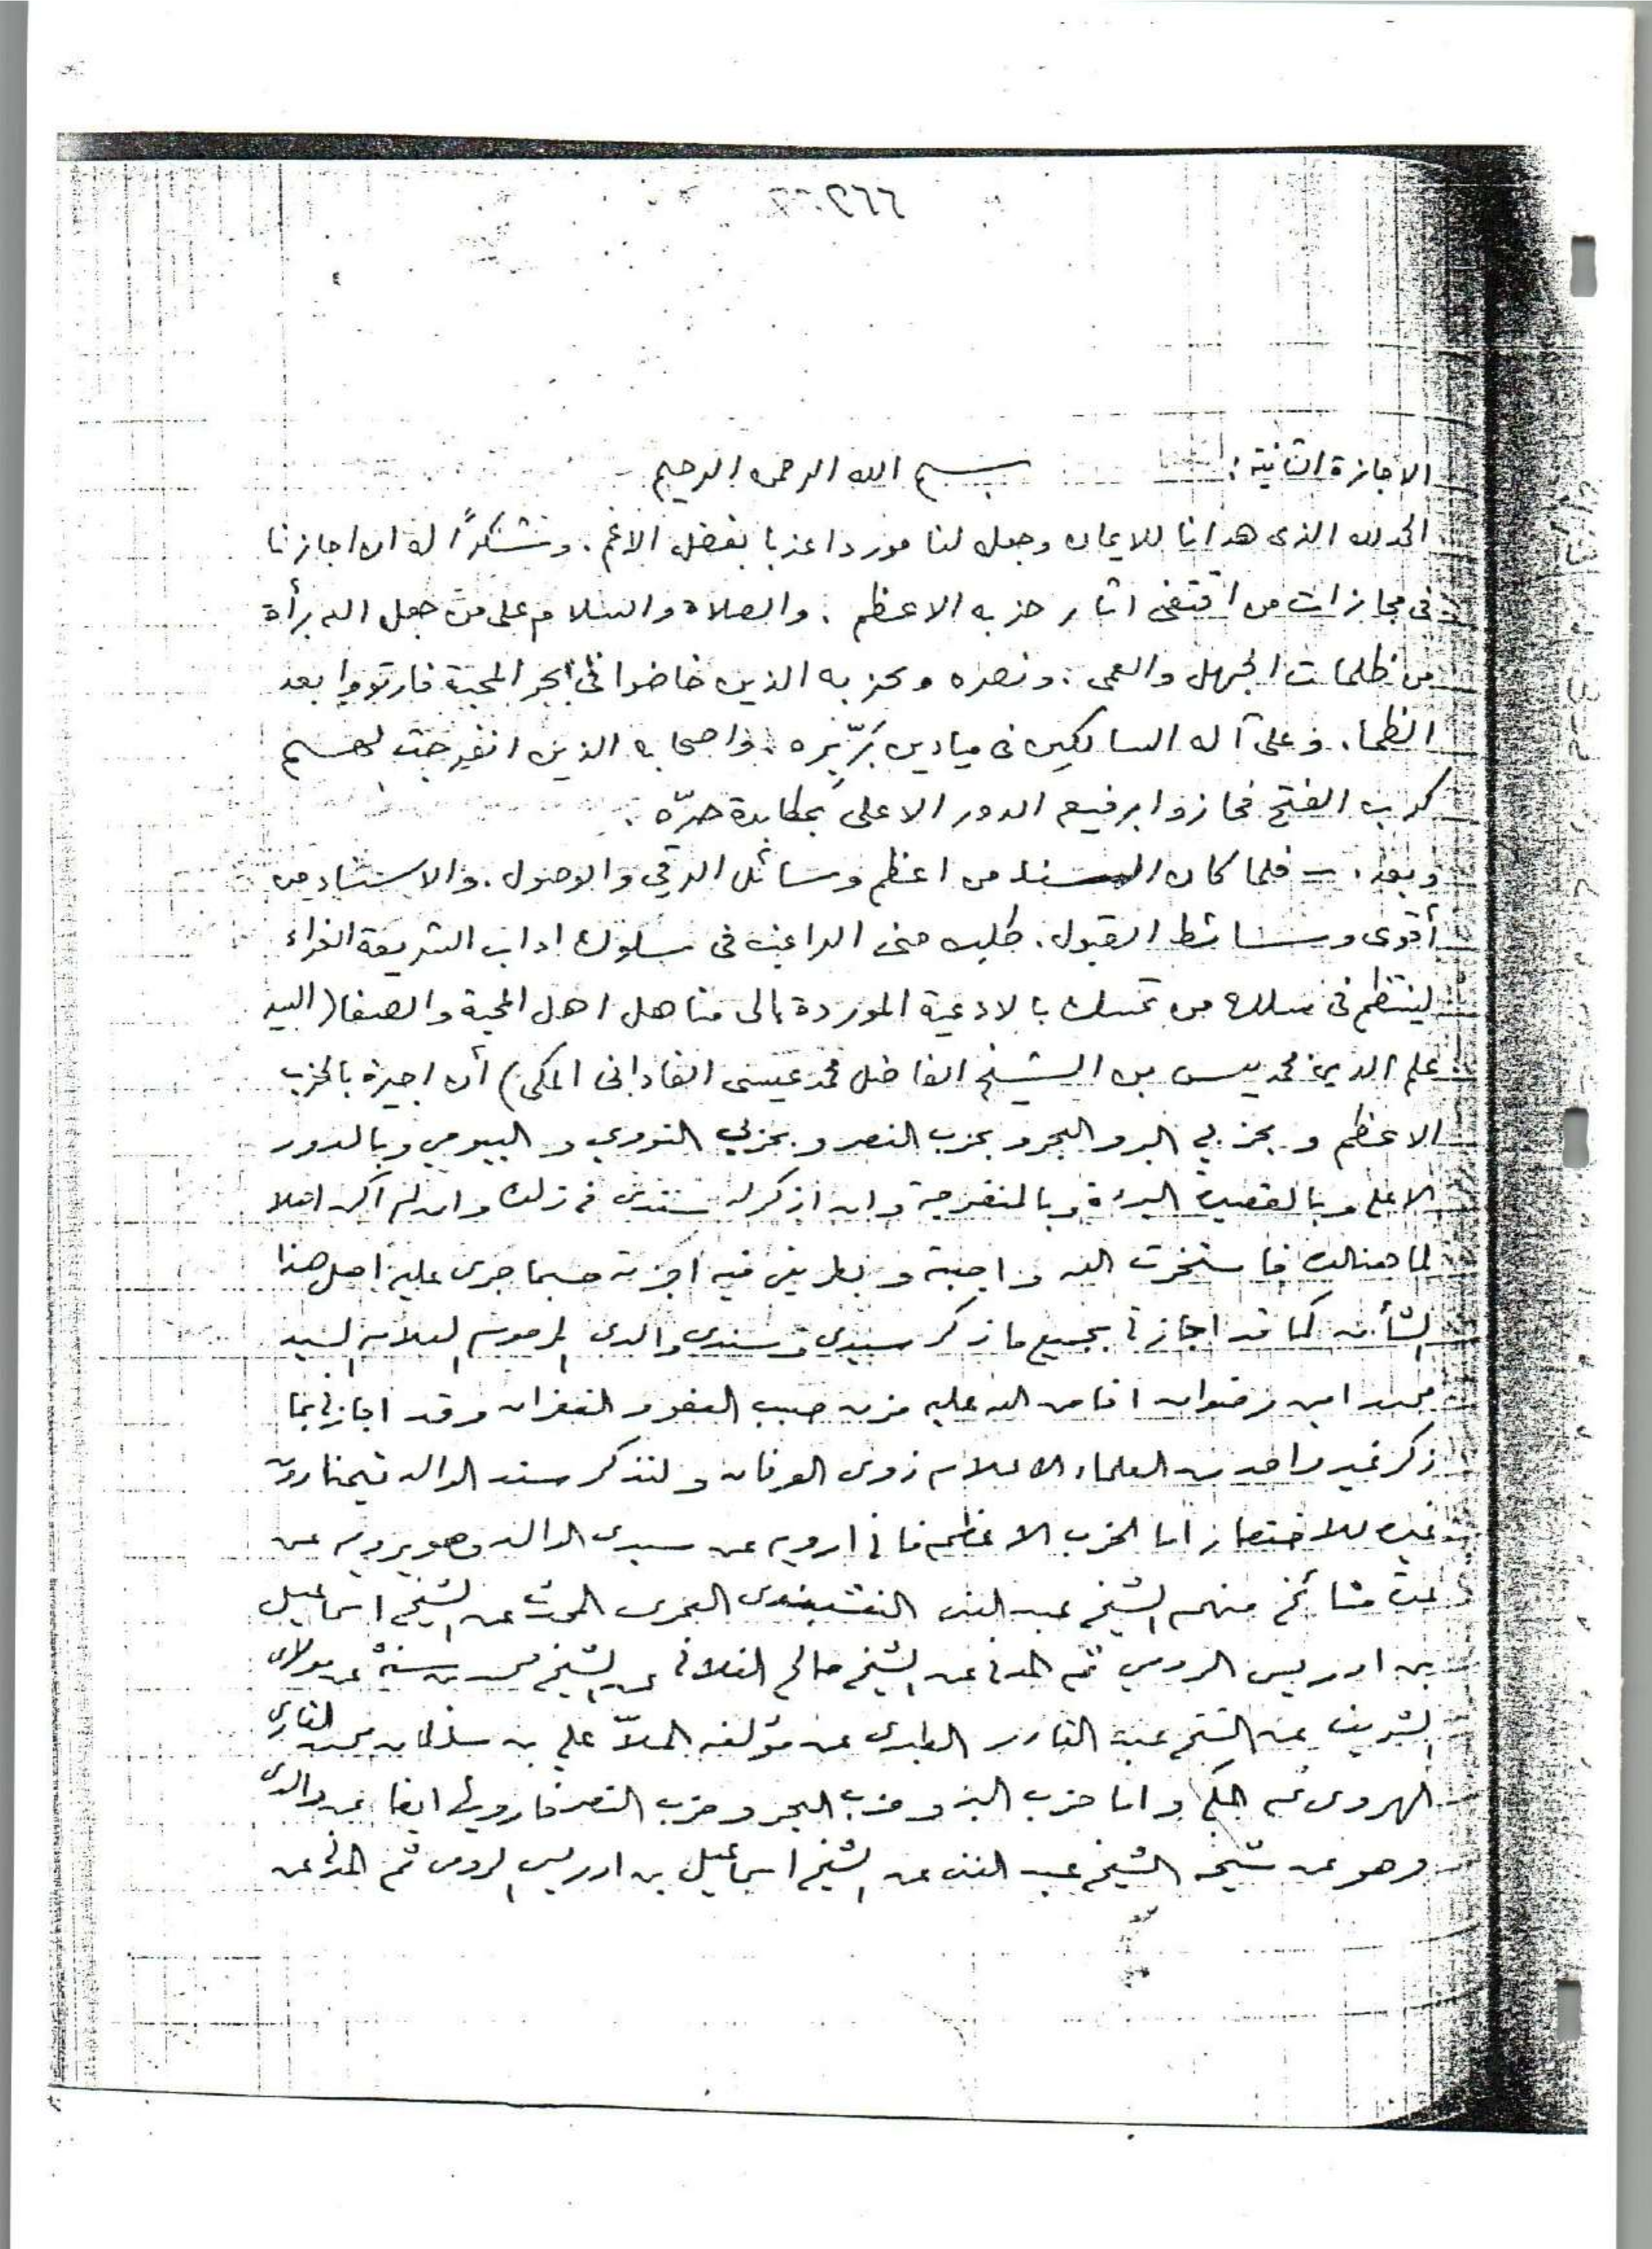 الاجازة الثانية : بسم الله الرحمن الرحيم
الحمد لله الذى هدانا للايمان وجعل لنا موردا عذبا بفضل الاعم . ونشكرًا له ان اجازنا
فى مجازات من اقتفى اثار حزبه الاعظم . والصلاة والسلام على من جعل الله برأة
من ظلمات الجهل والعمى . ونصره وبحزبه الذين خاضوا فى ابحر المحبة فارتووا بعد
الظما . وعلى آله السالكين فى ميادين برّبره . واصحابه الذين انفرجت لهم
كرب الفتح فحازوا برفيع الدور الاعلى بمكابدة حرّه .
وبعد . – فلما كان السند من اعظم وسائل الرقي والوصول . والاسناد من
أقوى وسائط القبول . طلب منى الراغب فى سلوك اداب الشريعة الغراء
لينتظم فى سلك من تمسك بالادعية الموردة الى مناهل اهل المحبة والصفا (السيد
علم الدين محمد يس بن الشيخ الفاضل محمد عيسى الفادانى المكى) أن اجيزه بالحزب
الاعظم و بحزبي البر والبحر و بحزب النصر و بحزبي النووي و البيومي وبالدور
الاعلى وبالقصيدة البردة وبالمنفرجة وان اذكر له سندى فى ذلك وان لم اكن اهلا
لما هنالك فاستخرت الله واجبته و بطريقى فيه اجزته حسبما جرى عليه اهل هذا
الشأن كما قد اجازنى بجميع ما ذكر سيدي وسندي والدى المرحوم العلامة السيد
محمد امين رضوان افاض الله عليه من صبب العفو والغفران وقد اجازنى بما
ذكر غير واحد من العلماء الاعلام ذوى العرفان ولنذكر سند الوالد تيمنا دون
غيره للاختصار اما الحزب الاعظم فانى ارويه عن سيدى الوالد وهو يرويه عن
عدة مشائخ منهم الشيخ عبد الغنى النقشبندى العمرى المحدث عن الشيخ اسماعيل
بن ادريس الرومي ثم المدنى عن الشيخ صالح الفلانى عن الشيخ محمد بن سنة عن مولاى
الشريف عن الشيخ عبد القادر الطبرى عن مؤلفه الملاّ علي بن سلطان محمد القارى
الهروى ثم المكى و اما حزب البر و حزب البحر و حزب النصر فارويها ايضا عن والدى
وهو عن شيخه الشيخ عبد الغنى عن الشيخ اسماعيل بن ادريس الرومى ثم المدنى عن